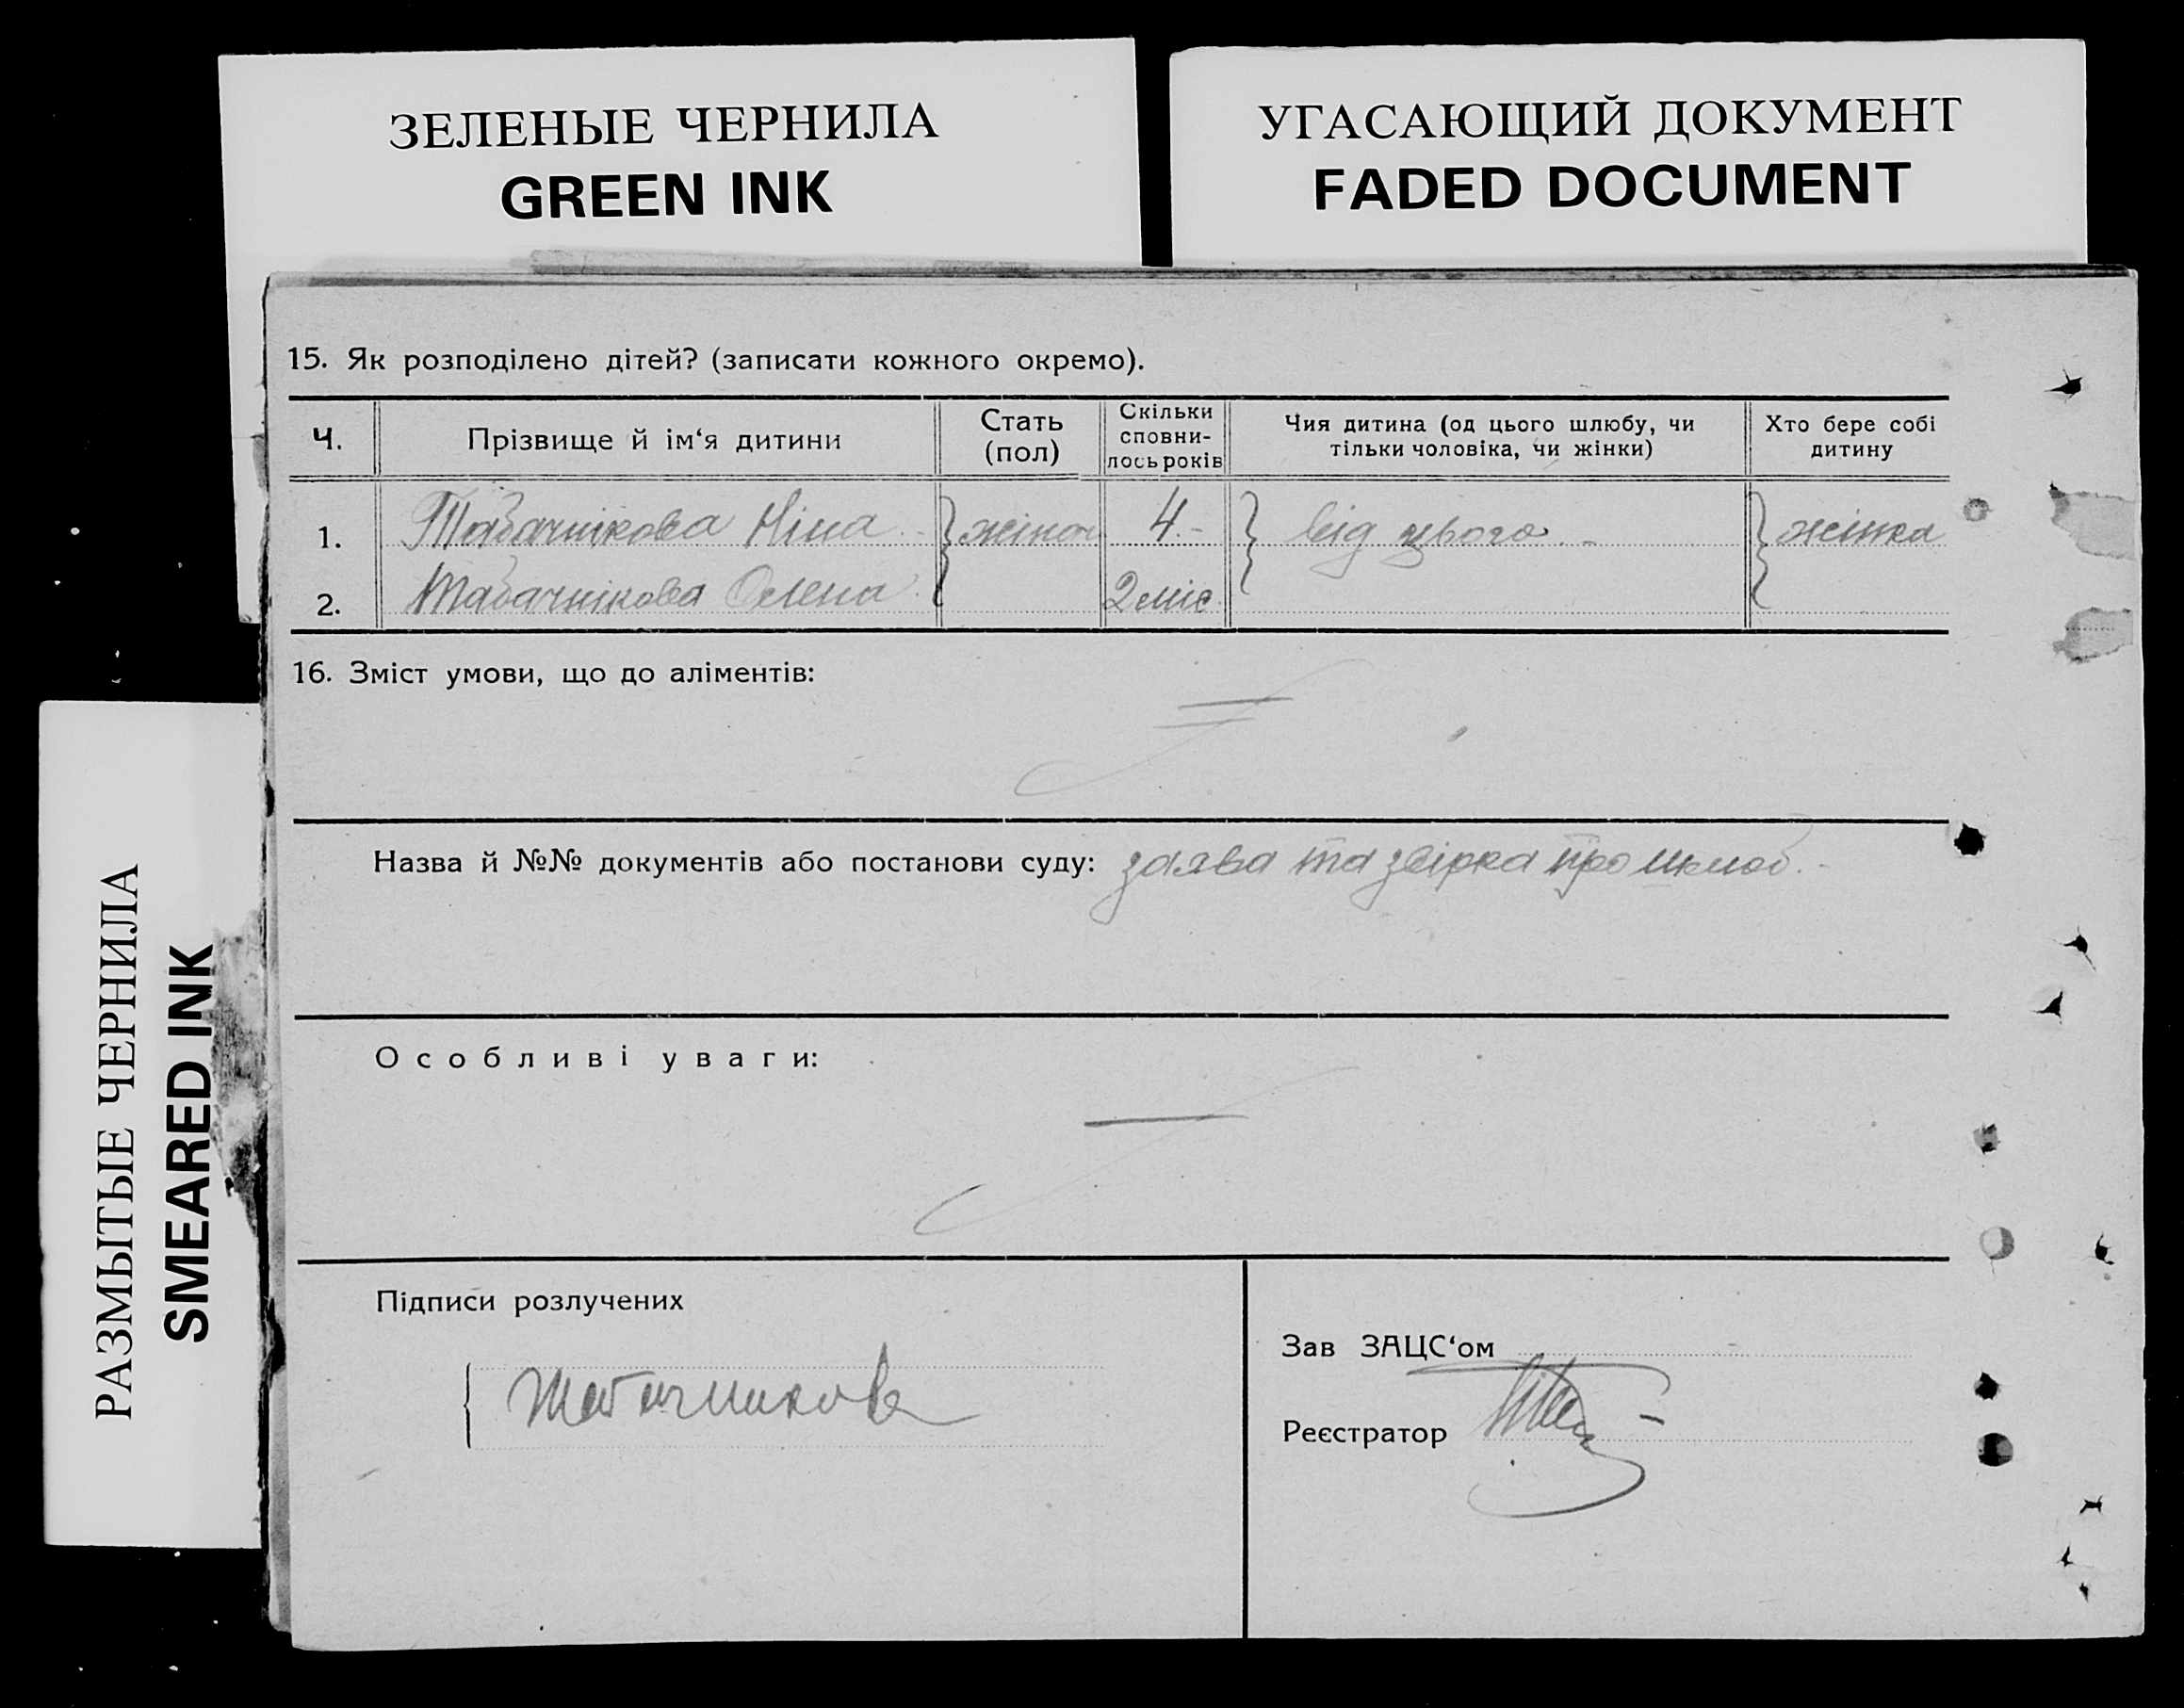 ЗЕЛЕНЫЕ ЧЕРНИЛА
GREEN INK
УГАСАЮЩИЙ ДОКУМЕНТ
FADED DOCUMENT
РАЗМЫТЫЕ ЧЕРНИЛА
SMEARED INK
15. Як розподілено дітей? (записати кожного окремо).
Ч.
Прізвище й ім‘я дитини
Стать
(пол)
Скільки
сповни-
лось років
Чия дитина (од цього шлюбу, чи
тільки чоловіка, чи жінки)
Хто бере собі
дитину
1. Табачнікова Ніна жіноч 4.- від цього.- жінка
2. Табачнікова Олена 2 міс
16. Зміст умови, що до аліментів:
Назва й №№ документів або постанови суду: заява та звірка про шлюб.-
Особливі уваги:
Підписи розлучених
Табачникова
Зав ЗАЦС‘ом
Реєстратор